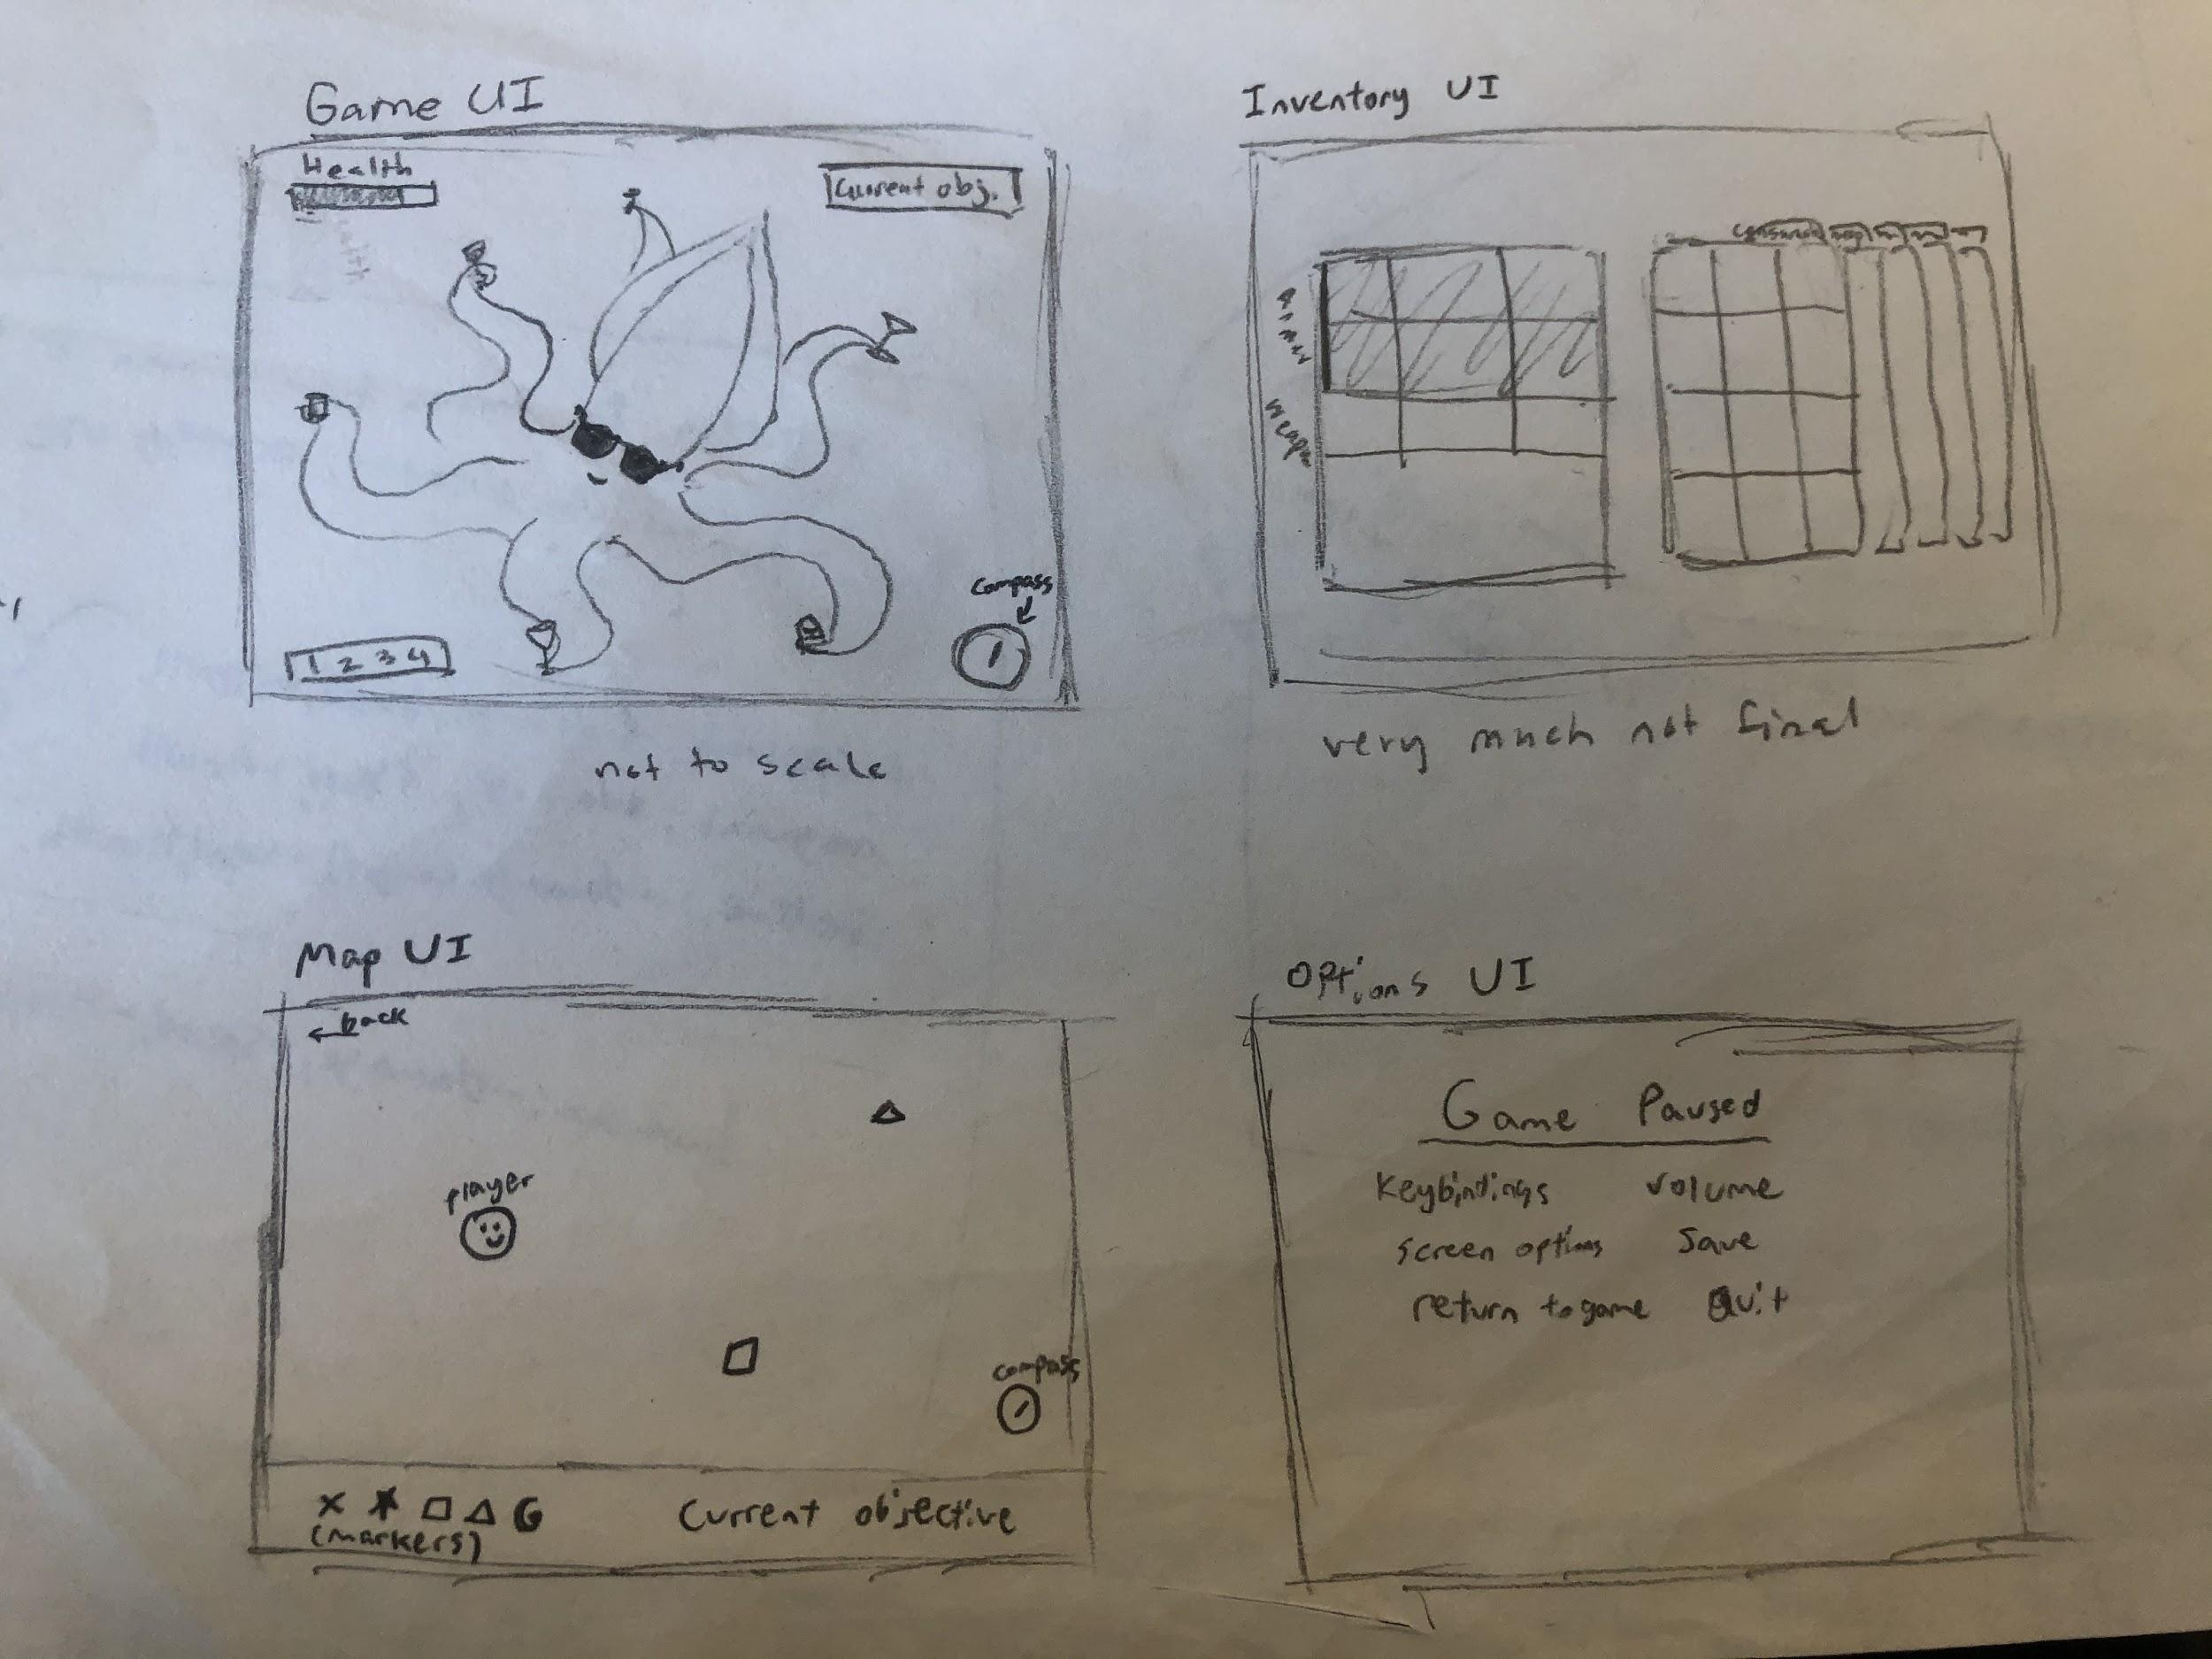 Game UI
Health
Current obj.
compass
1 2 3 4
not to scale
Inventory UI
Armor
weapon
very much not final
Map UI
back
player
compass
(markers)
Current objective
Options UI
Game Paused
Keybindings volume
screen options Save
return to game Quit